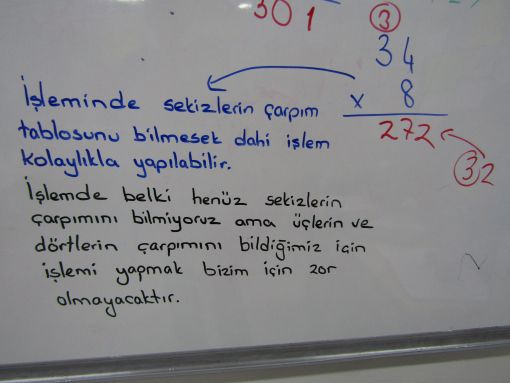 301
3
34
x 8
272
32
İşleminde sekizlerin çarpım
tablosunu bilmesek dahi işlem
kolaylıkla yapılabilir.
İşlemde belki henüz sekizlerin
çarpımını bilmiyoruz ama üçlerin ve
dörtlerin çarpımını bildiğimiz için
işlemi yapmak bizim için zor
olmayacaktır.